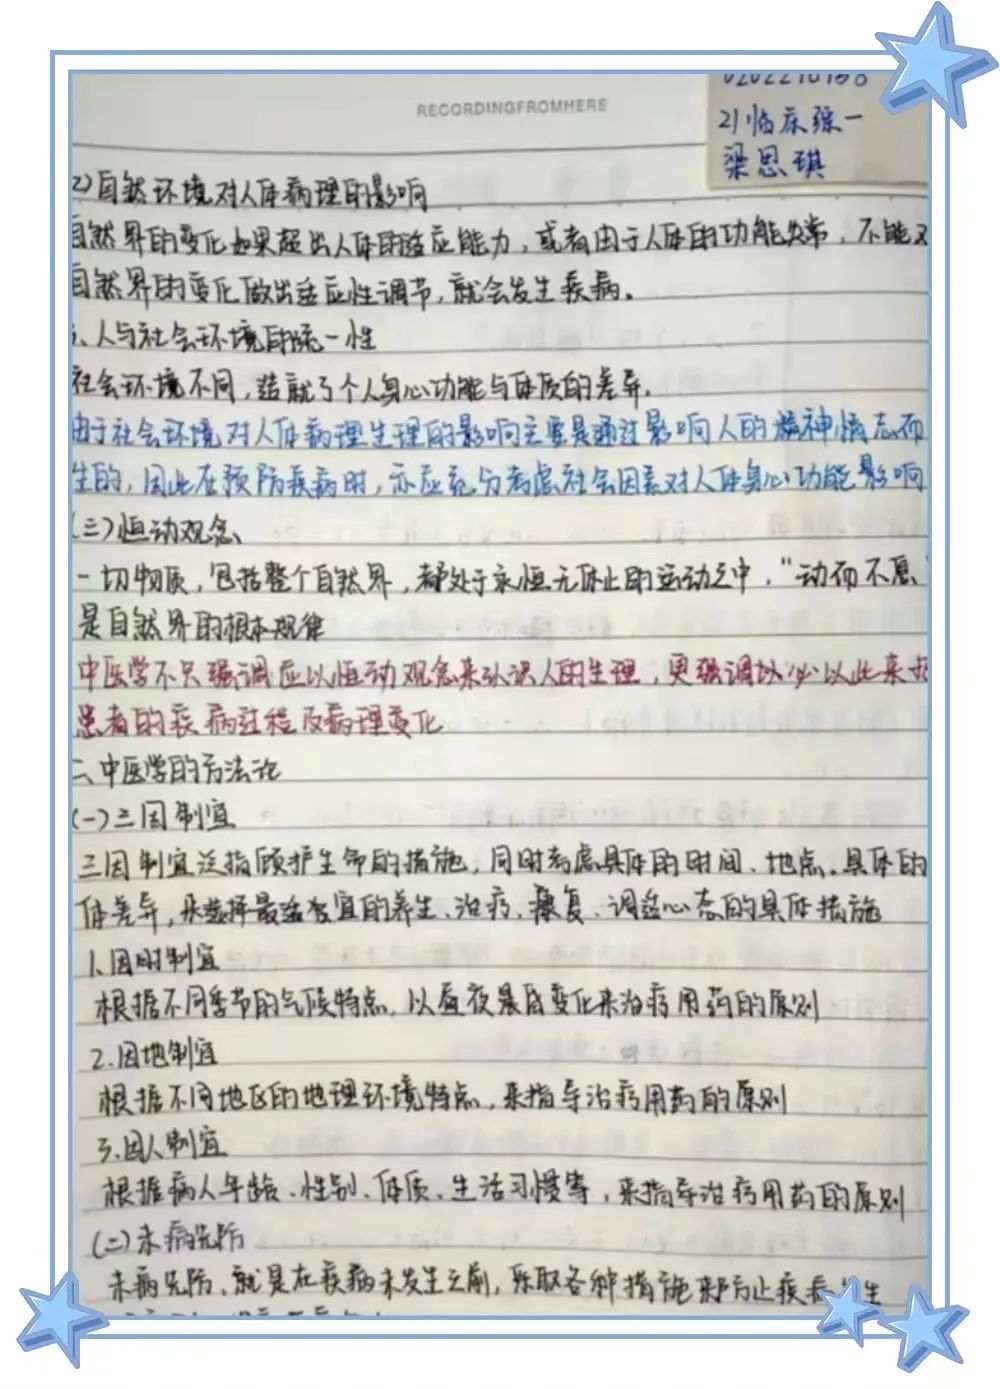 RECORDINGFROMHERE
21临床综一
梁思琪
2)自然环境对人体病理的影响
自然界的变化如果超出人体的适应能力，或者由于人体的功能失常，不能对
自然界的变化做出适应性调节，就会发生疾病。
、人与社会环境的统一性
社会环境不同，造就了个人身心功能与体质的差异.
由于社会环境对人体病理生理的影响主要是通过影响人的精神情志而
生的，因此在预防疾病时，亦应充分考虑社会因素对人体身心功能影响
(三)恒动观念
一切物质，包括整个自然界，都处于永恒无休止的运动之中，“动而不息”
是自然界的根本规律
中医学不只强调应以恒动观念来认识人的生理，更强调以 以此来
患者的疾病过程及病理变化
二、中医学的方法论
(一)三因制宜
三因制宜泛指顾护生命的措施，同时考虑具体的时间、地点。具体的
体差异，来选择最适宜的养生、治疗、康复、调适心态的具体措施
1.因时制宜
根据不同季节的气候特点，以昼夜晨昏变化来治疗用药的原则
2.因地制宜
根据不同地区的地理环境特点，来指导治疗用药的原则
3.因人制宜
根据病人年龄、性别、体质、生活习惯等，来指导治疗用药的原则
(二)未病先防
未病先防，就是在疾病未发生之前，采取各种措施来防止疾病 生